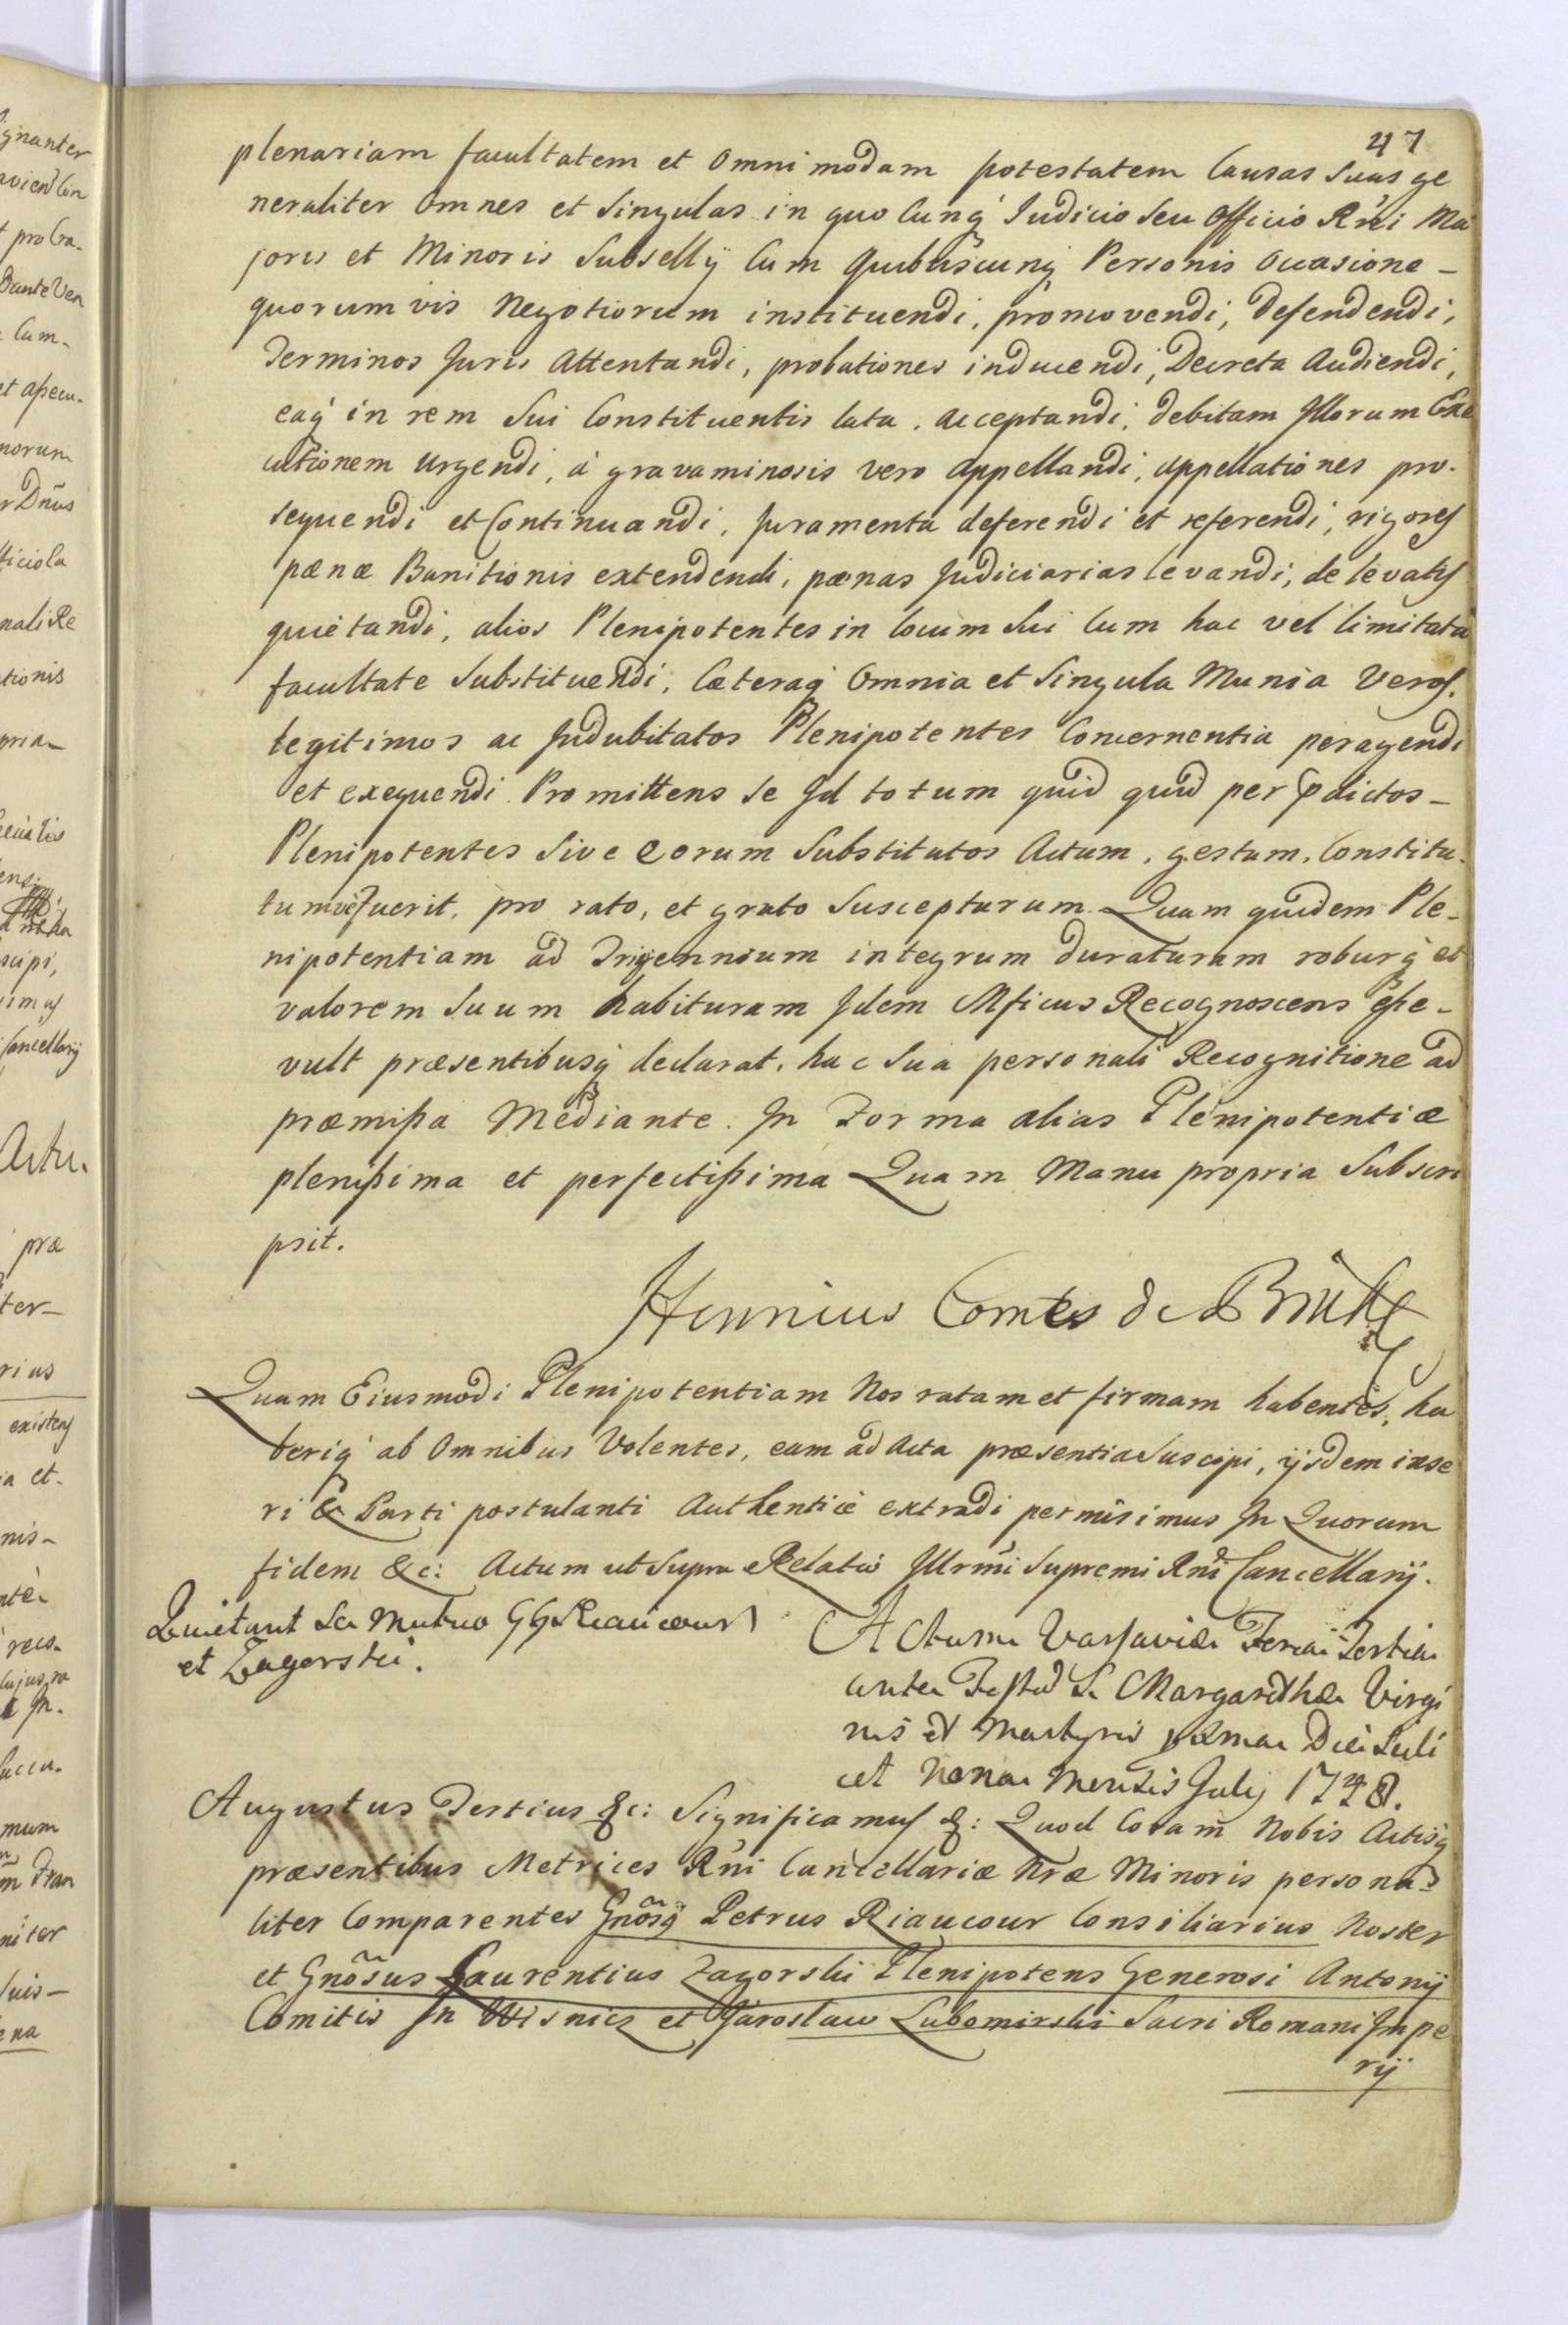 47
plenariam facultatem et Omnimodam potestatem Causas Suas ge
neraliter Omnes et Singulas in quo Cunq́ Judicio Seu Officio Rńi Ma
joris et Minoris Subsellÿ Cum Quibuscunq́ Personis Occasione -
quorumvis Negotiorum instituendi, promovendi, defendendi,
Terminos Juris Attentandi, probationes inducendi, Decreta Audiendi,
eaq́ in rem Sui Constituentis lata, acceptandi, debitam Illorum Exe
cutionem urgendi, à gravaminosis vero appellandi, appellationes pro.
sequendi et Continuandi, Juramenta deferendi et referendi, rigores
pænæ Banitionis extendendi, pænas Judiciarias levandi, de levatis
quietandi, alios Plenipotentes in locum Sui Cum hac vel limitata
facultate Substituendi, Cæteraq́ Omnia et Singula Munia Veros,
legitimos ac Indubitatos Plenipotentes Concernentia peragendi
et exequendi. Promittens se Id totum quid quid per pdictos -
Plenipotentes Sive eorum Substitutos Actum, gestum, Constitu-
tumvè Fuerit, pro rato, et grato Suscepturum. Quam quidem Ple-
nipotentiam ad Trijennium integrum duraturam roburq́ et
valorem Suum habituram Idem Mficus Recognoscens eße -
vult præsentibusq́ declarat, hac Sua personali Recognitione ad
præmißa Mediante. In Forma alias Plenipotentiæ
plenißima et perfectißima Quam Manu propria Subscri
psit.
Henricus Comes de Brühl
Quam Eiusmodi Plenipotentiam Nos ratam et firmam habentes, ha
beriq́ ab Omnibus Volentes, eam ad Acta præsentia Suscipi, ijsdem inse
ri & Parti postulanti Authenticè extradi permisimus In Quorum
fidem &c: Actum ut Supra Relatio Illrmi Supremi Rni Cancellarij.
Quietant Se Mutuo GG Riaucour
et Zagorski.
Actum Varsaviæ Feria Tertia
ante Festũ S. Margarethæ Virgi
nis et Martyris proxima Die Scili
cet Nona Mensis July 1748.
Augustus Tertius &c: Significamus &: Quod Coram Nobis Actisq́
præsentibus Metrices Rńi Cancellariæ Nræ Minoris persona
liter Comparentes Gnõsÿ Petrus Riaucour Consiliarius Noster
et Gnõsus Laurentius Zagorski Plenipotens Generosi Antonij
Comitis In Wisnicz et Jaroslaw Lubomirski Sacri Romani Impe
rij